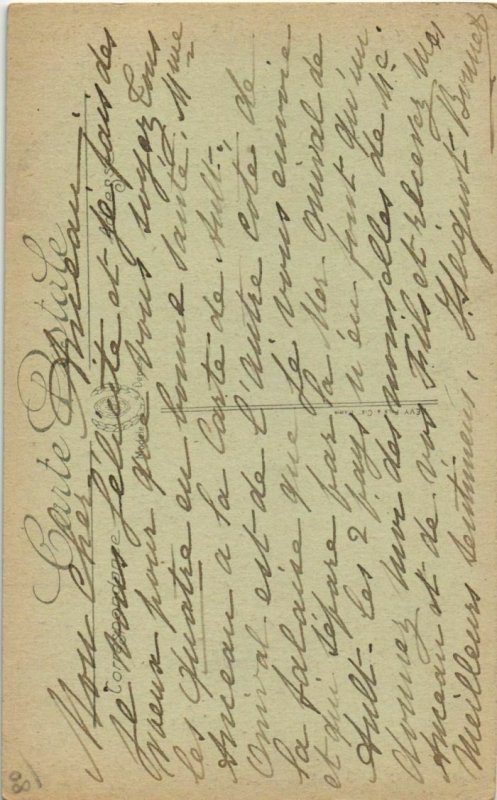 Carte Postale
Mon Cher Anceau
Je vous félicite et je fais des
Vœux pour que vous soyez tous
les quatre en bonne santé. Mme
Anceau a la Carte de Ault.
Onival est de l'autre coté de
la falaise que je vous envoie
et qui sépare par la Mer Onival de
Ault. les 2 pays n'en font qu'un.
donnez moi des nouvelles de Mme
Anceau et de vos fils et recevez mes
Meilleurs sentiments.
Correspondance
LÉVY FILS & Cie, PARIS
18